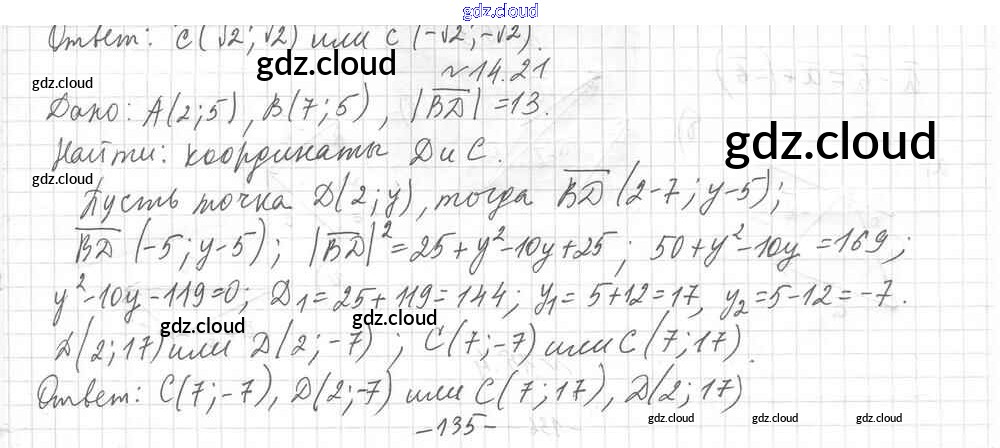 gdz.cloud
Ответ: C(√2; √2) или C(-√2; -√2).
gdz.cloud
~14.21
gdz.cloud
Дано: A(2;5), B(7;5), |BD| = 13.
gdz.cloud
Найти: координаты D и C.
gdz.cloud
Пусть точка D(2; y), тогда BD (2-7; y-5);
BD (-5; y-5); |BD|² = 25 + y² - 10y + 25; 50 + y² - 10y = 169;
y² - 10y - 119 = 0; D₁ = 25 + 119 = 144; y₁ = 5 + 12 = 17, y₂ = 5 - 12 = -7.
gdz.cloud gdz.cloud
D(2; 17) или D(2; -7); C(7; -7) или C(7; 17).
Ответ: C(7; -7), D(2; -7) или C(7; 17), D(2; 17)
gdz.cloud gdz.cloud gdz.cloud
-135-